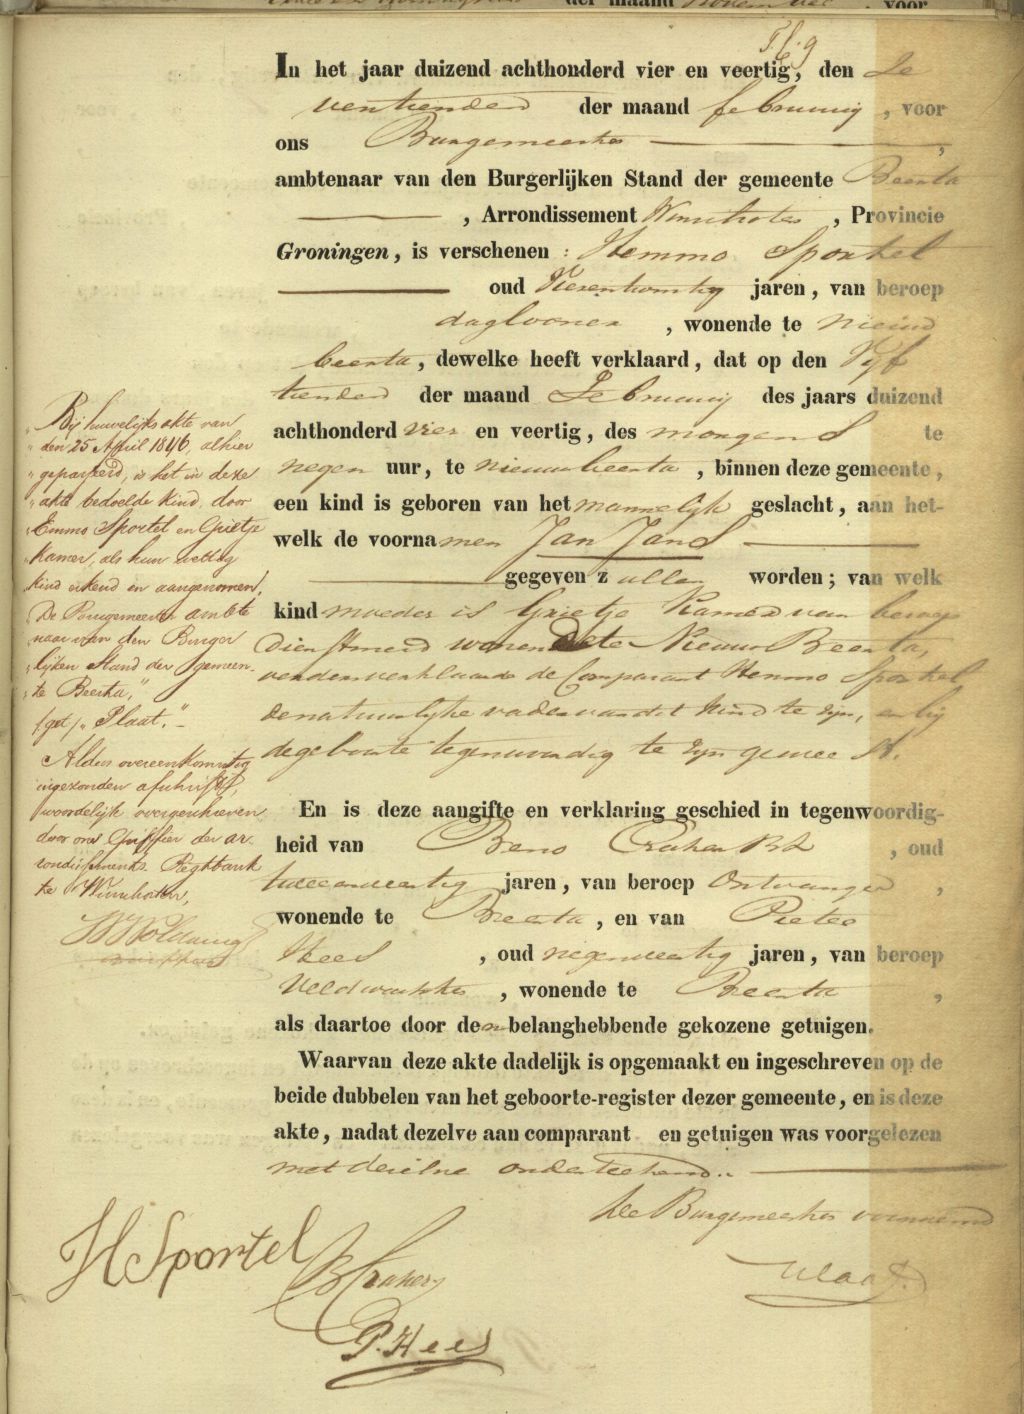 der maand November, voor
In het jaar duizend achthonderd vier en veertig, den Ze
ventienden der maand februarij, voor
ons Burgemeester
ambtenaar van den Burgerlijken Stand der gemeente Beerta
, Arrondissement Winschoten, Provincie
Groningen, is verschenen: Hemmo Sportel
oud Zesentwintig jaren, van beroep
daglooner, wonende te nieuw
beerta, dewelke heeft verklaard, dat op den Vijf
tienden der maand Februarij des jaars duizend
achthonderd vier en veertig, des morgens te
negen uur, te nieuwbeerta, binnen deze gemeente,
een kind is geboren van het mannelijk geslacht, aan het-
welk de voornamen Jan Jans
gegeven zullen worden; van welk
kind moeder is Grietje Kamer van beroep
Dienstmeid wonende te Nieuw Beerta,
verder verklaarde de Comparant Hemmo Sportel
de natuurlijke vader van dit kind te zijn, en bij
de geboorte tegenwoordig te zijn geweest.
En is deze aangifte en verklaring geschied in tegenwoordig-
heid van Beno , oud
tweeenveertig jaren, van beroep Ontvanger,
wonende te Beerta, en van Pieter
Hees, oud negenveertig jaren, van beroep
Veldwachter, wonende te Beerta,
als daartoe door den belanghebbende gekozene getuigen.
Waarvan deze akte dadelijk is opgemaakt en ingeschreven op de
beide dubbelen van het geboorte-register dezer gemeente, en is deze
akte, nadat dezelve aan comparant en getuigen was voorgelezen
met dezelve onderteekend.
De Burgemeester voornoemd
H Sportel
Plaat.
P. Hees
„Bij huwelijks akte van
„den 25 April 1846, alhier
„gepasseerd, is het in deze
„akte bedoelde kind, door
„Emmo Sportel en Grietje
„Kamer, als hun wettig
„kind erkend en aangenomen,
„De Burgemeester ambte
„naar van den Burger
„lijken Stand der gemeen-
„te Beerta,"
/get/. Plaat."
Aldus overeenkomstig
ingezonden afschrift,
woordelijk overgeschreven
door ons Griffier der ar-
rondissements Regtbank
te Winschoten,